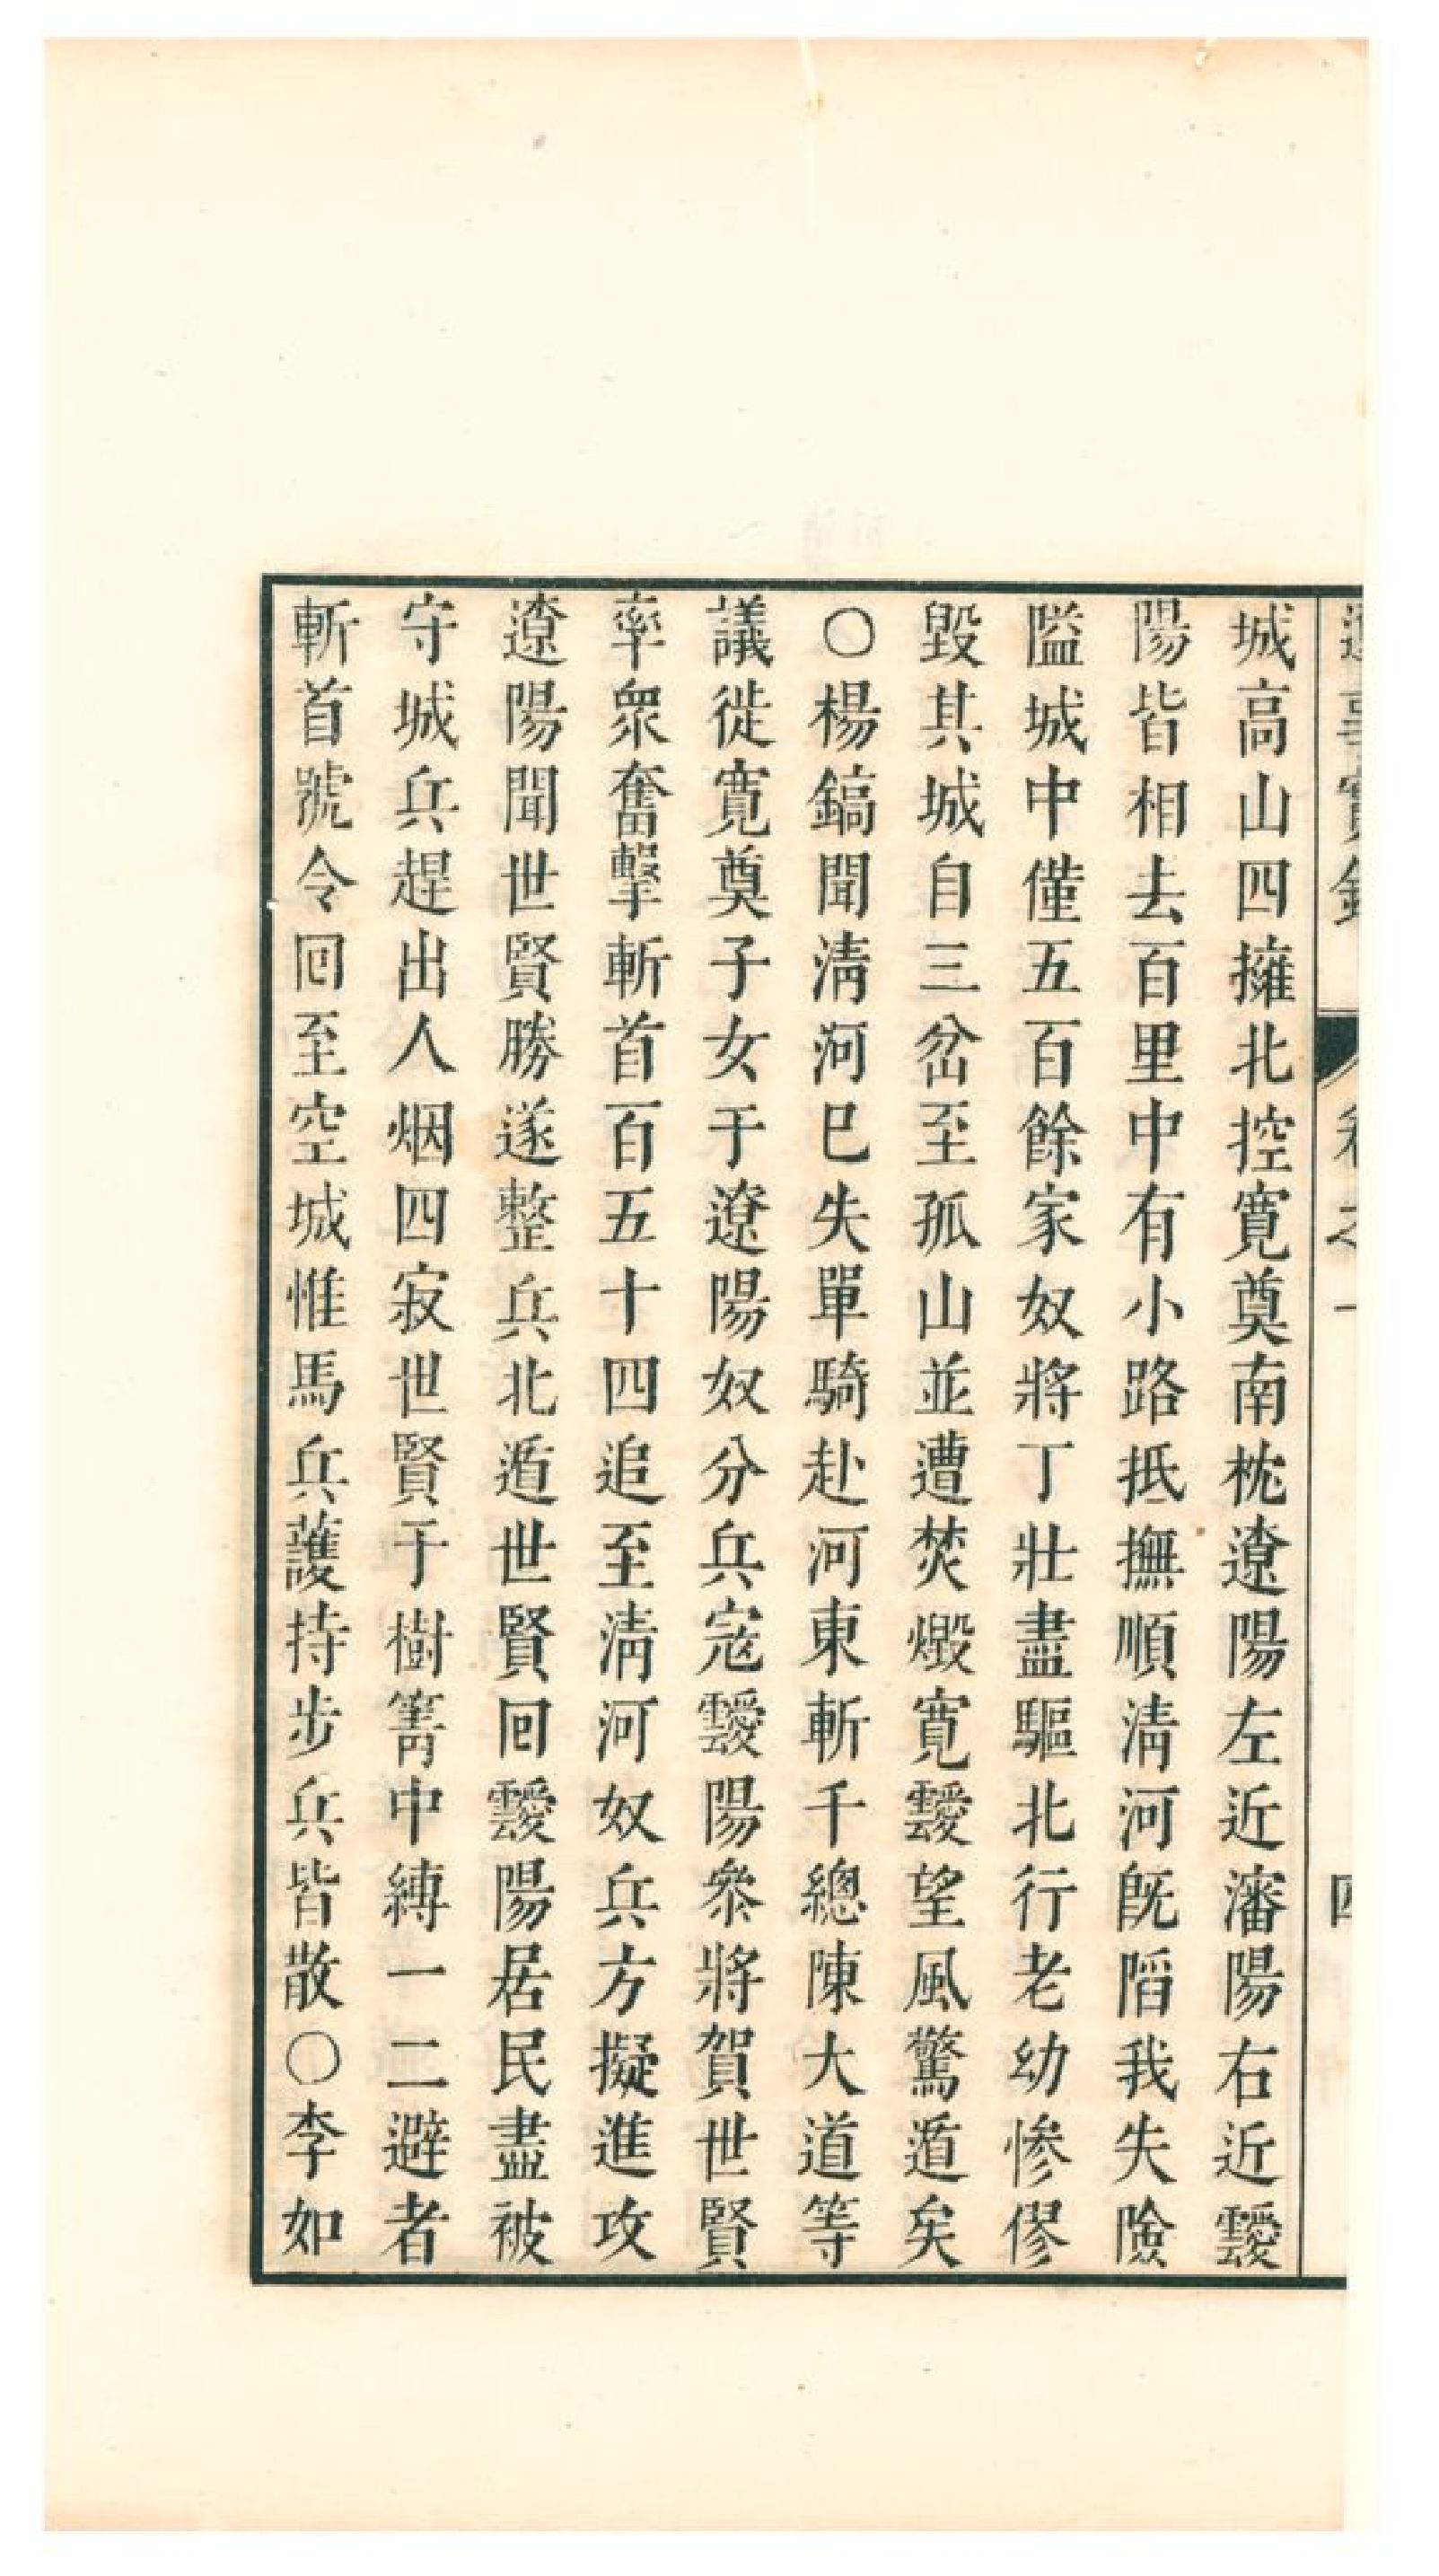 城高山四擁北控寬奠南枕遼陽左近瀋陽右近靉
陽皆相去百里中有小路抵撫順淸河旣䧟我失險
隘城中僅五百餘家奴將丁壯盡驅北行老幼慘僇
毀其城自三岔至孤山並遭焚燬寬靉望風驚遁矣
○楊鎬聞淸河巳失單騎赴河東斬千總陳大道等
議徙寬奠子女于遼陽奴分兵寇靉陽叅將賀世賢
率衆奮擊斬首百五十四追至淸河奴兵方擬進攻
遼陽聞世賢勝遂整兵北遁世賢回靉陽居民盡被
守城兵趕出人烟四寂世賢于樹箐中縛一二避者
斬首號令回至空城惟馬兵護持步兵皆散○李如